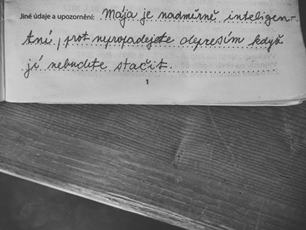 Jiné údaje a upozornění: Mája je nadměrně inteligen-
tní, prot nyropadejete depresím když
jí nebudete stačit.
1